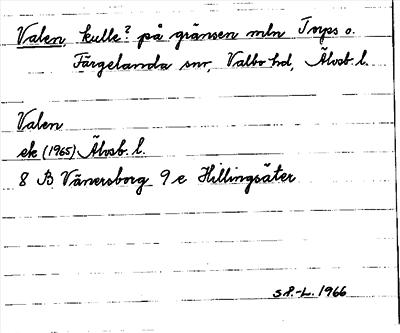 Valen, kulle? på gränsen mln Torps o.
Färgelanda snr, Valbo hd, Älvsb. l.
Valen
ek (1965) Älvsb. l.
8 B Vänersborg 9 e Hillingsäter
S.P.-L. 1966